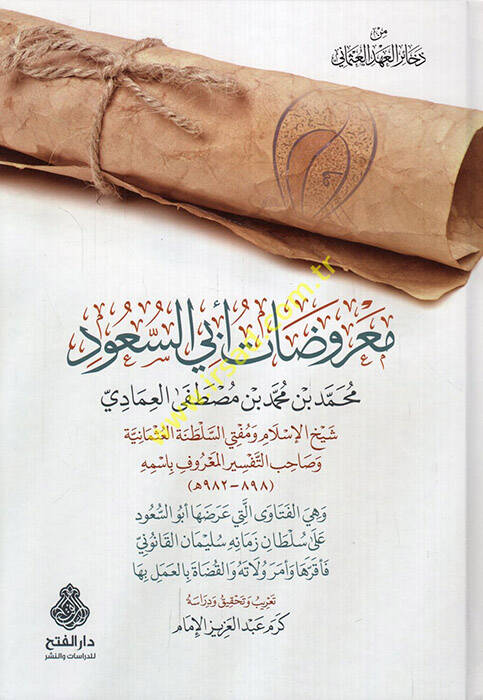 من
ذخائر العهد العثماني
معروضات أبي السعود
محمد بن محمد بن مصطفى العمادي
شيخ الإسلام ومفتي السلطنة العثمانية
وصاحب التفسير المعروف باسمه
(٨٩٨-٩٨٢هـ)
وهي الفتاوى التي عرضها أبو السعود
على سلطان زمانه سليمان القانوني
فأقرها وأمر ولاته والقضاة بالعمل بها
تعريب وتحقيق ودراسة
كرم عبد العزيز الإمام
دار الفتح
للدراسات والنشر
www.irsad.com.tr